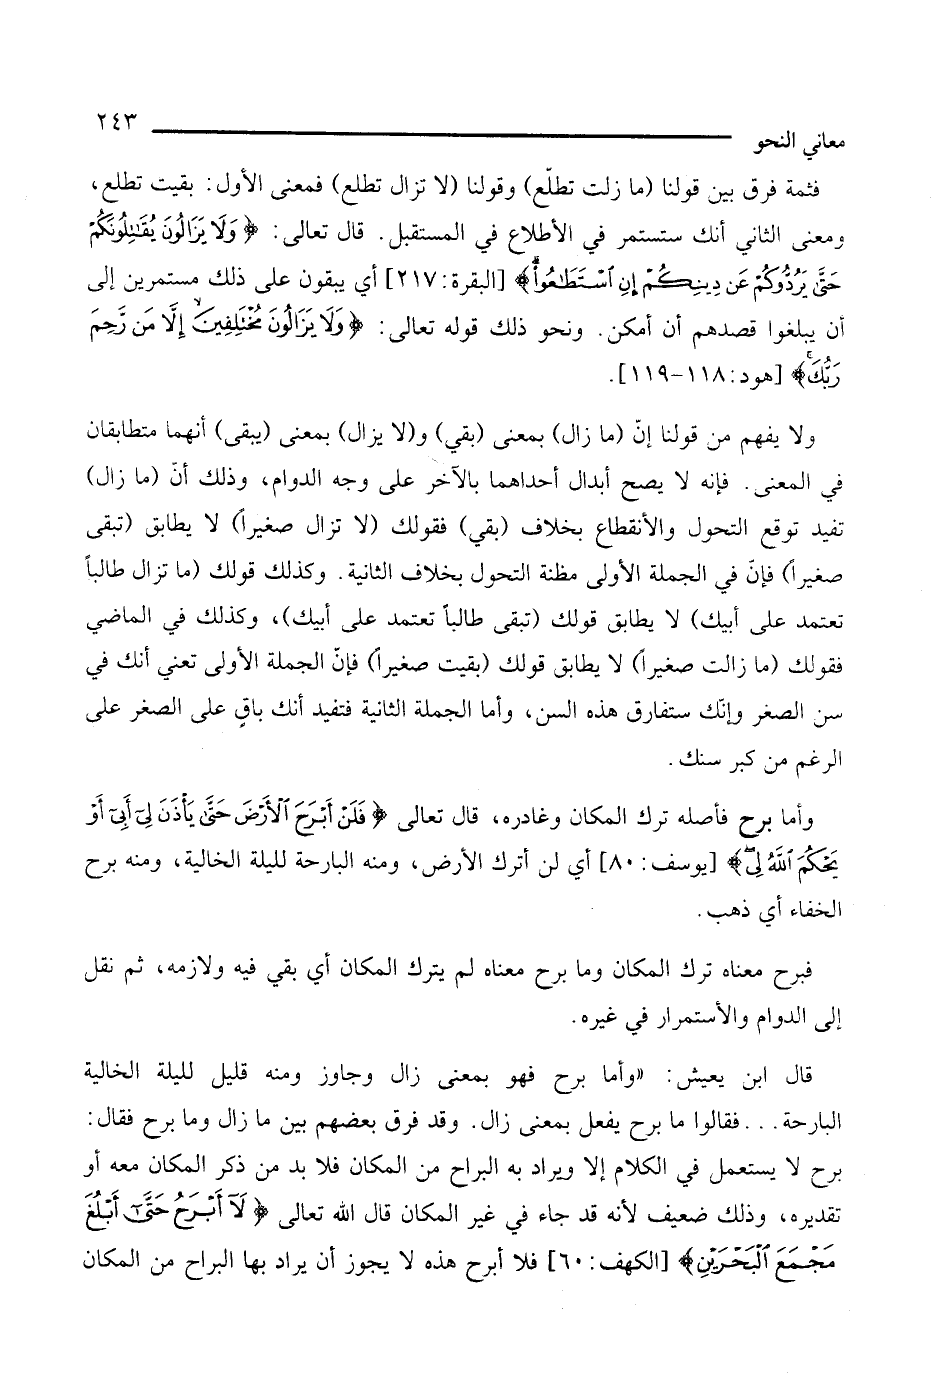 معاني النحو ٢٤٣
فثمة فرق بين قولنا (ما زلت تطلّع) وقولنا (لا تزال تطلع) فمعنى الأول: بقيت تطلع،
ومعنى الثاني أنك ستستمر في الأطلاع في المستقبل. قال تعالى: ﴿ وَلَا يَزَالُونَ يُقَٰتِلُونَكُمْ
حَتَّىٰ يَرُدُّوكُمْ عَن دِينِكُمْ إِنِ ٱسْتَطَٰعُوا۟ ﴾ [البقرة: ٢١٧] أي يبقون على ذلك مستمرين إلى
أن يبلغوا قصدهم أن أمكن. ونحو ذلك قوله تعالى: ﴿ وَلَا يَزَالُونَ مُخْتَلِفِينَ ۙ إِلَّا مَن رَّحِمَ
رَبُّكَ ۚ ﴾ [هود: ١١٨-١١٩].
ولا يفهم من قولنا إنّ (ما زال) بمعنى (بقي) و(لا يزال) بمعنى (يبقى) أنهما متطابقان
في المعنى. فإنه لا يصح أبدال أحداهما بالآخر على وجه الدوام، وذلك أنّ (ما زال)
تفيد توقع التحول والأنقطاع بخلاف (بقي) فقولك (لا تزال صغيراً) لا يطابق (تبقى
صغيراً) فإنّ في الجملة الأولى مظنة التحول بخلاف الثانية. وكذلك قولك (ما تزال طالباً
تعتمد على أبيك) لا يطابق قولك (تبقى طالباً تعتمد على أبيك)، وكذلك في الماضي
فقولك (ما زالت صغيراً) لا يطابق قولك (بقيت صغيراً) فإنّ الجملة الأولى تعني أنك في
سن الصغر وإنّك ستفارق هذه السن، وأما الجملة الثانية فتفيد أنك باقٍ على الصغر على
الرغم من كبر سنك.
وأما برح فأصله ترك المكان وغادره، قال تعالى ﴿ فَلَنْ أَبْرَحَ ٱلْأَرْضَ حَتَّىٰ يَأْذَنَ لِىٓ أَبِىٓ أَوْ
يَحْكُمَ ٱللَّهُ لِى ۖ ﴾ [يوسف: ٨٠] أي لن أترك الأرض، ومنه البارحة لليلة الخالية، ومنه برح
الخفاء أي ذهب.
فبرح معناه ترك المكان وما برح معناه لم يترك المكان أي بقي فيه ولازمه، ثم نقل
إلى الدوام والأستمرار في غيره.
قال ابن يعيش: «وأما برح فهو بمعنى زال وجاوز ومنه قليل لليلة الخالية
البارحة... فقالوا ما برح يفعل بمعنى زال. وقد فرق بعضهم بين ما زال وما برح فقال:
برح لا يستعمل في الكلام إلا ويراد به البراح من المكان فلا بد من ذكر المكان معه أو
تقديره، وذلك ضعيف لأنه قد جاء في غير المكان قال الله تعالى ﴿ لَآ أَبْرَحُ حَتَّىٰٓ أَبْلُغَ
مَجْمَعَ ٱلْبَحْرَيْنِ ﴾ [الكهف: ٦٠] فلا أبرح هذه لا يجوز أن يراد بها البراح من المكان